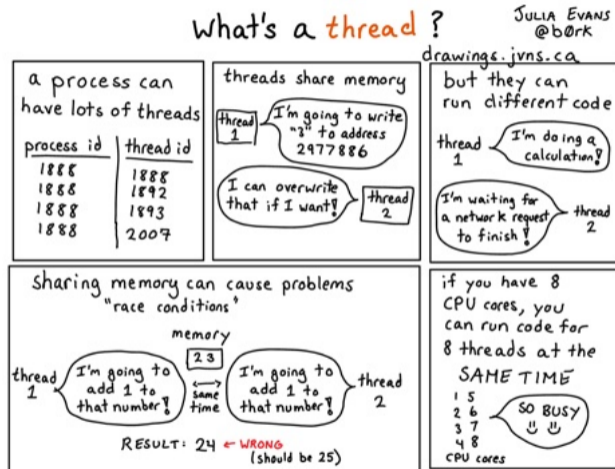 what's a thread?
JULIA EVANS
@b0rk
drawings.jvns.ca
a process can
have lots of threads
process id thread id
1888 1888
1888 1892
1888 1893
1888 2007
threads share memory
thread
1
I'm going to write
"3" to address
2977886
I can overwrite
that if I want!
thread
2
but they can
run different code
thread
1
I'm doing a
calculation!
I'm waiting for
a network request
to finish!
thread
2
sharing memory can cause problems
"race conditions"
memory
23
thread
1
I'm going to
add 1 to
that number!
same
time
I'm going to
add 1 to
that number!
thread
2
RESULT: 24 ← WRONG
(should be 25)
if you have 8
CPU cores, you
can run code for
8 threads at the
SAME TIME
1 5
2 6
3 7
4 8
CPU cores
SO BUSY